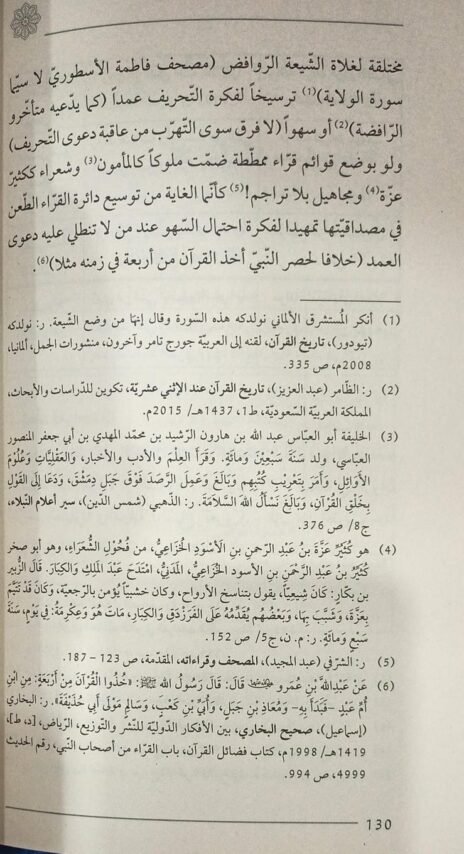 مختلقة لغلاة الشّيعة الرّوافض (مصحف فاطمة الأسطوريّ لا سيّما
سورة الولاية)(1) ترسيخاً لفكرة التّحريف عمداً (كما يدّعيه متأخّرو
الرّافضة)(2) أو سهواً (لا فرق سوى التهرّب من عاقبة دعوى التّحريف)
ولو بوضع قوائم قرّاء ممطّطة ضمّت ملوكاً كالمأمون(3) وشعراء ككثيّر
عزّة(4) ومجاهيل بلا تراجم!(5) كأنّما الغاية من توسيع دائرة القرّاء الطّعن
في مصداقيّتها تمهيدا لفكرة احتمال السّهو عند من لا تنطلي عليه دعوى
العمد (خلافا لحصر النبيّ أخذ القرآن من أربعة في زمنه مثلا)(6).
(1) أنكر المُستشرق الألماني نولدكه هذه السّورة وقال إنها من وضع الشّيعة. ر: نولدكه
(تيودور)، تاريخ القرآن، لقنه إلى العربيّة جورج تامر وآخرون، منشورات الجمل، ألمانيا،
2008م، ص 335.
(2) ر: الظّامر (عبد العزيز)، تاريخ القرآن عند الإثني عشريّة، تكوين للدّراسات والأبحاث،
المملكة العربيّة السّعوديّة، ط1، 1437هـ/ 2015م.
(3) الخليفة أبو العبّاس عبد الله بن هارون الرّشيد بن محمّد المهدي بن أبي جعفر المنصور
العبّاسي، ولد سَنَةَ سَبْعِيْنَ وَمائَةٍ. وَقَرَأَ العِلْمَ والأدب والأخبار، والعَقْلِيَّاتِ وَعُلُوْمَ
الأَوَائِلِ، وَأَمَرَ بِتَعْرِيْبِ كُتُبِهِم وَبَالَغَ وَعَمِلَ الرَّصَدَ فَوْقَ جَبَلِ دِمَشْقَ، وَدَعَا إِلَى القَوْلِ
بِخَلْقِ القُرْآنِ، وَبَالَغَ نَسْأَلُ اللهَ السَّلاَمَةَ. ر: الذّهبي (شمس الدّين)، سير أعلام النّبلاء،
ج8/ ص 376.
(4) هو كُثَيِّرُ عَزَّةَ بنُ عَبْدِ الرّحمنِ بنِ الأسْوَدِ الخُزَاعِيُّ، من فُحُوْلِ الشُّعَرَاءِ، وهو أبو صخر
كُثَيِّرُ بنُ عَبْدِ الرَّحْمَنِ بنِ الأسود الخُزاعِيُّ، المَدَنِيُّ، امْتَدَحَ عَبْدَ المَلِكِ وَالكِبَارَ. قَالَ الزُّبير
بن بكّارٍ: كَانَ شِيعِيّاً، يقول بتناسخ الأرواح، وكان خشبيّاً يُؤمن بالرجعيّة، وَكَانَ قَدْ تَتَيَّمَ
بِعَزَّةَ، وَشَبَّبَ بِهَا، وَبَعْضُهُم يُقَدِّمُهُ عَلَى الفَرَزْدَقِ والكِبَارِ، مَاتَ هُوَ وَعِكْرِمَةُ: فِي يَوْمٍ، سَنَةَ
سَبْعٍ وَمائَةٍ. ر: م. ن، ج5/ ص 152.
(5) ر: الشّرفي (عبد المجيد)، المصحف وقراءاته، المقدّمة، ص 123 - 187.
(6) عَنْ عَبْدِاللَّهِ بْنِ عَمْرٍو قَالَ: قَالَ رَسُولُ اللهِ ﷺ: «خُذُوا القُرْآنَ مِنْ أَرْبَعَةٍ: مِنِ ابْنِ
أُمِّ عَبْدٍ -فَبَدَأَ بِهِ- وَمُعَاذِ بْنِ جَبَلٍ، وَأُبَيِّ بْنِ كَعْبٍ، وَسَالِمٍ مَوْلَى أَبِي حُذَيْفَةَ». ر: البخاري
(إسماعيل)، صحيح البخاري، بين الأفكار الدّوليّة للنّشر والتّوزيع، الرّياض، [د، ط]،
1419هـ/ 1998م، كتاب فضائل القرآن، باب القرّاء من أصحاب النّبي، رقم الحديث
4999، ص 994.
130